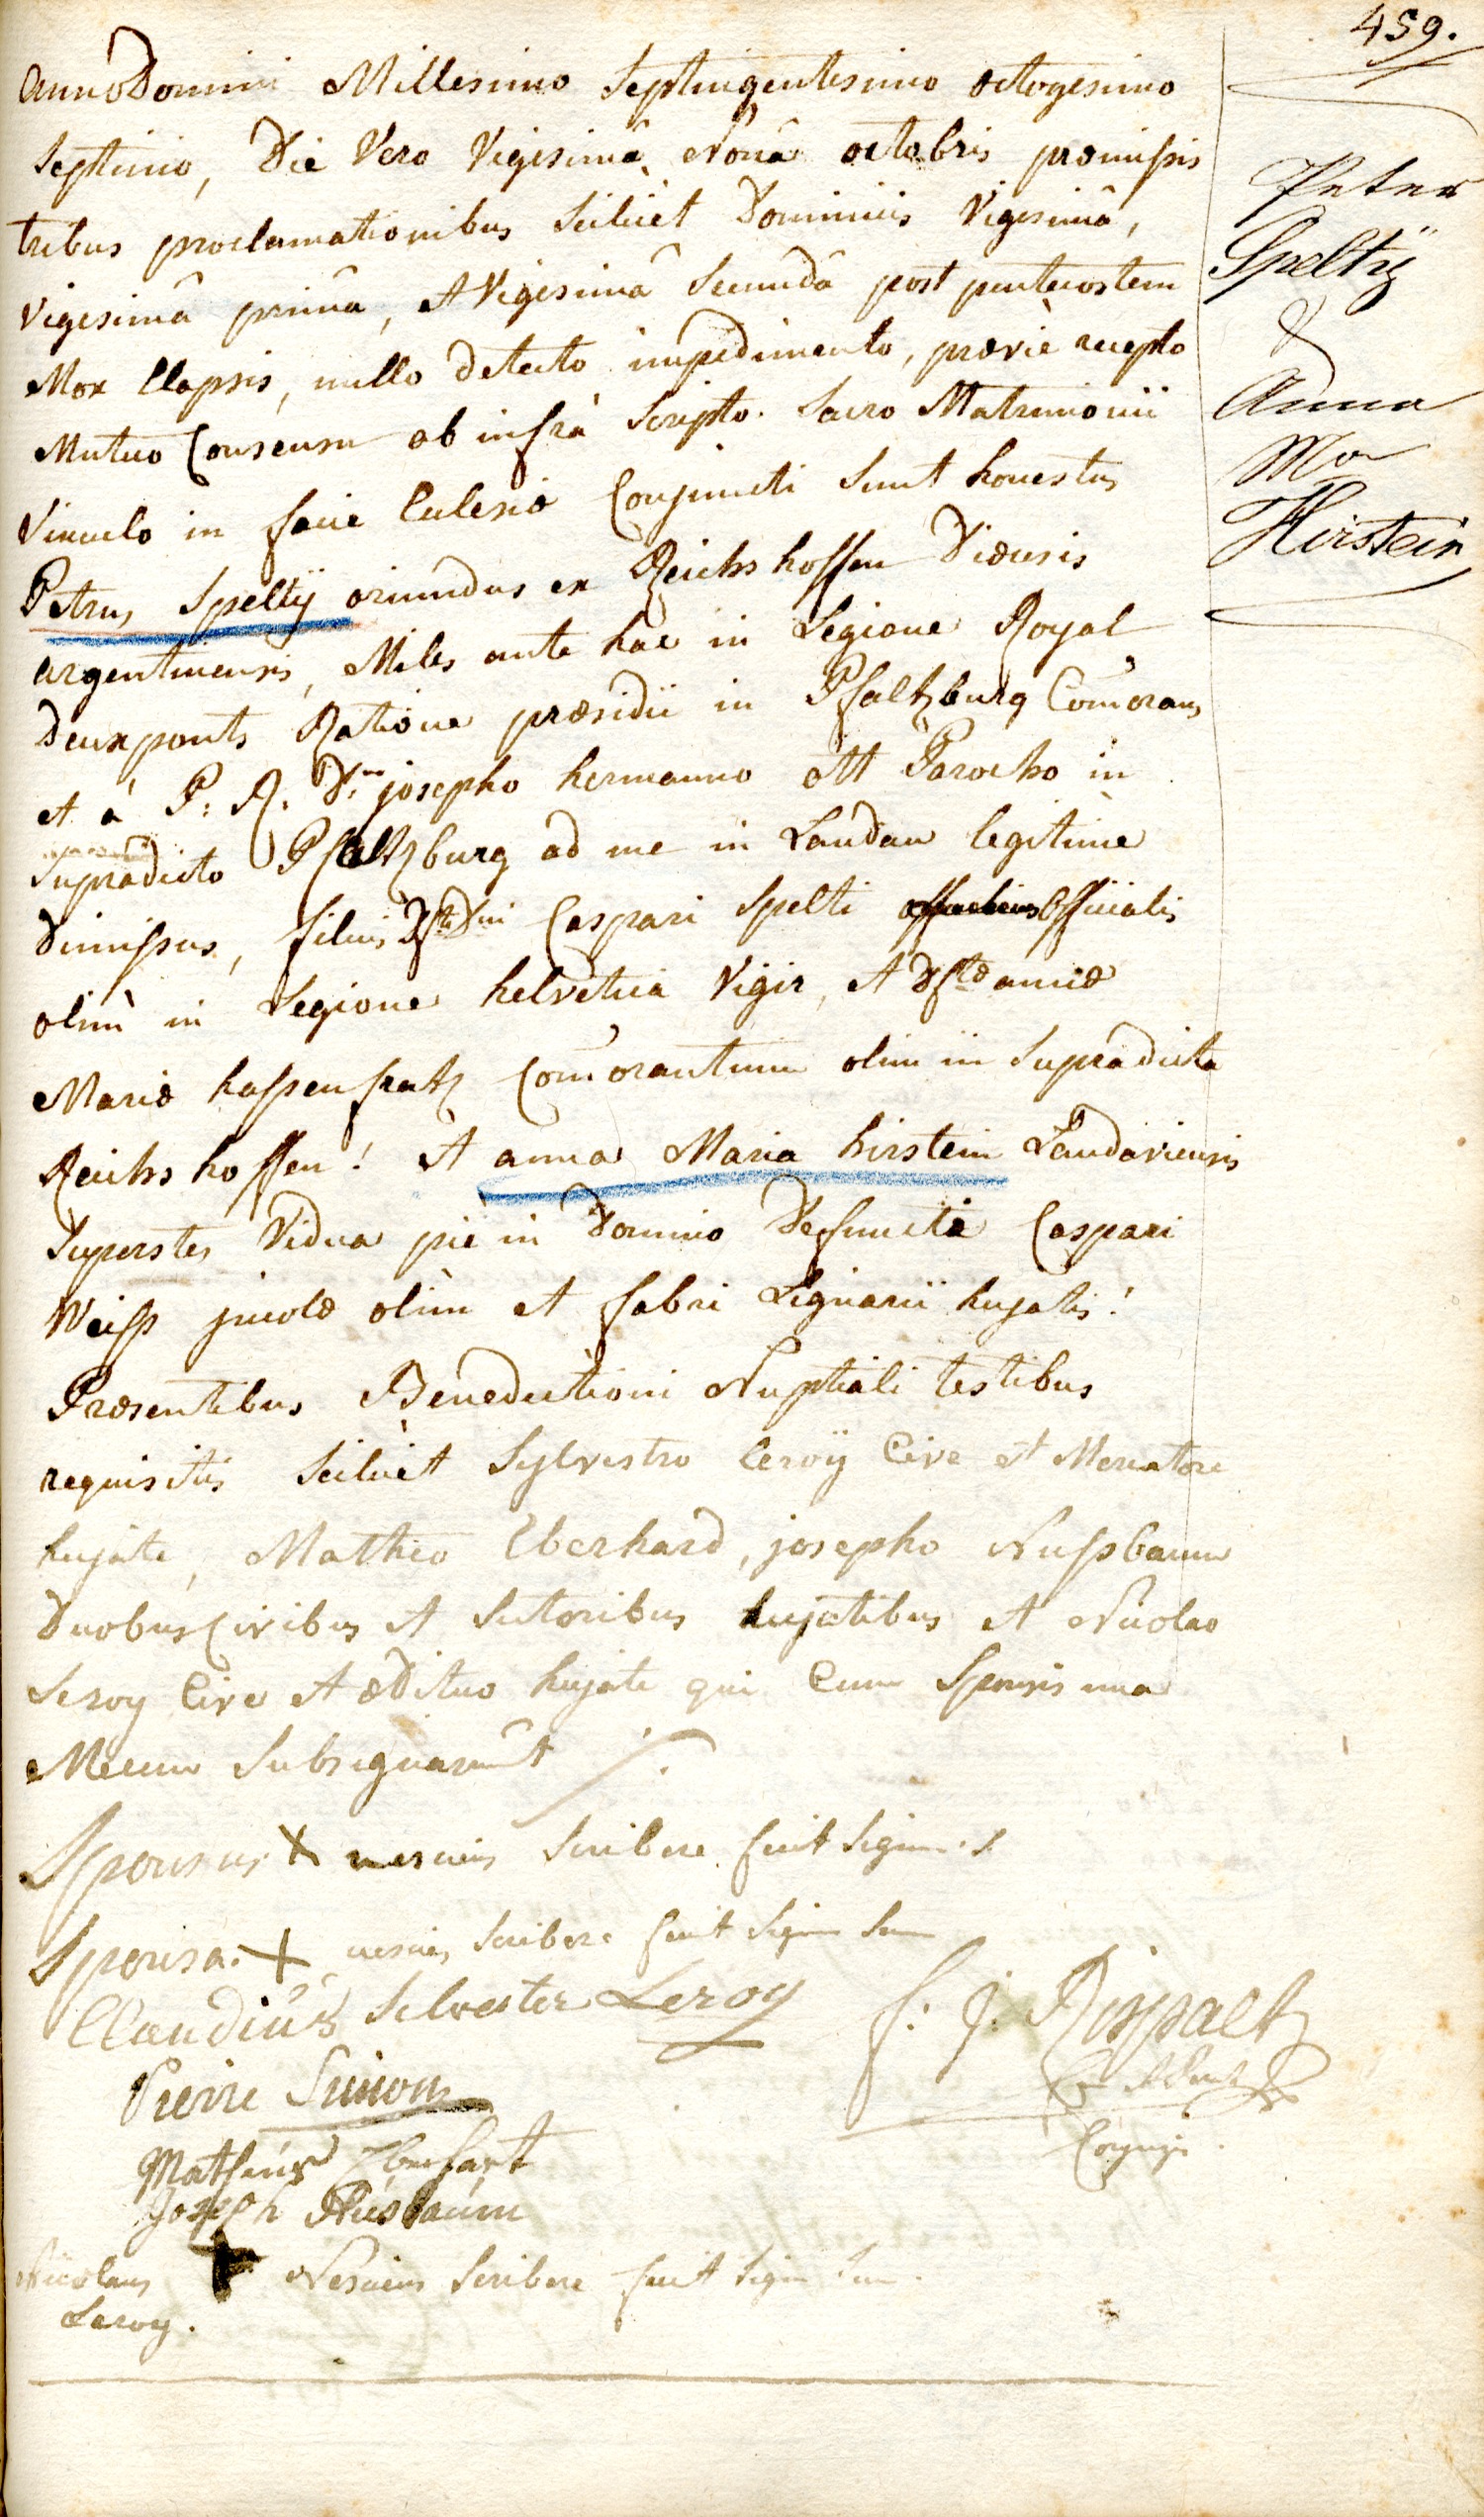 459.
Anno Domini Millesimo Septingentesimo octogesimo
Septimo, Die Vero Vigesimâ Nonâ octobris præmissis
tribus proclamationibus Scilicet Dominicis Vigesimâ,
Vigesimâ primâ, et Vigesimâ Secundâ post pentecostem
Mox Elapsis, nullo detecto impedimento, præviè recepto
Mutuo Consensu ab infrà Scripto. Sacro Matrimonii
Vinculo in facie Eclesiæ Conjuncti Sunt honestus
Petrus Speltÿ oriundus ex Reichshoffen Diœcesis
argentinensis, Miles ante hac in Legione Royal
Deuxponts Ratione præsidii in Pfaltzburg Com̄orans
et à P: R. D. josepho hermanno ott Parocho in
Supradicto Pfaltzburg ad me in Landau legitime
Dimissus, filius Dfti Dni Caspari Spelti Officialis
olim in Legione helvetica Vigir, et Dftæ annæ
Mariæ hassenfratz Com̄orantium olim in Supradicta
Reichshoffen! et anna Maria hirstein Landaviensis
Superstes Vidua piè in Domino Defuncti Caspari
Weiss incolæ olim et fabri Lignarii hujatis!
Præsentibus Benedictioni Nuptiali testibus
requisitis Scilicet Sylvestro leroÿ Cive et Mercatore
hujate, Matheo Eberhard, josepho Nussbaum
Duobus Civibus et Sutoribus hujatibus et Nicolao
Leroy Cive et ædituo hujate qui Cum Sponsis una
Mecum Subsignarunt
Sponsus + nesciens Scribere fecit Signum S.
Sponsa. + nesciens Scribere fecit Signum Suum
Claudius Silvester Leroy
f: J. Rispaltz
Pierre Simon
Matheus Eberhart
Joseph Nusbaum
Nicolaus + Nesciens Scribere fecit Signum Suum.
Leroy.
Peter
Speltÿ
&
Anna
Ma
Hirstein